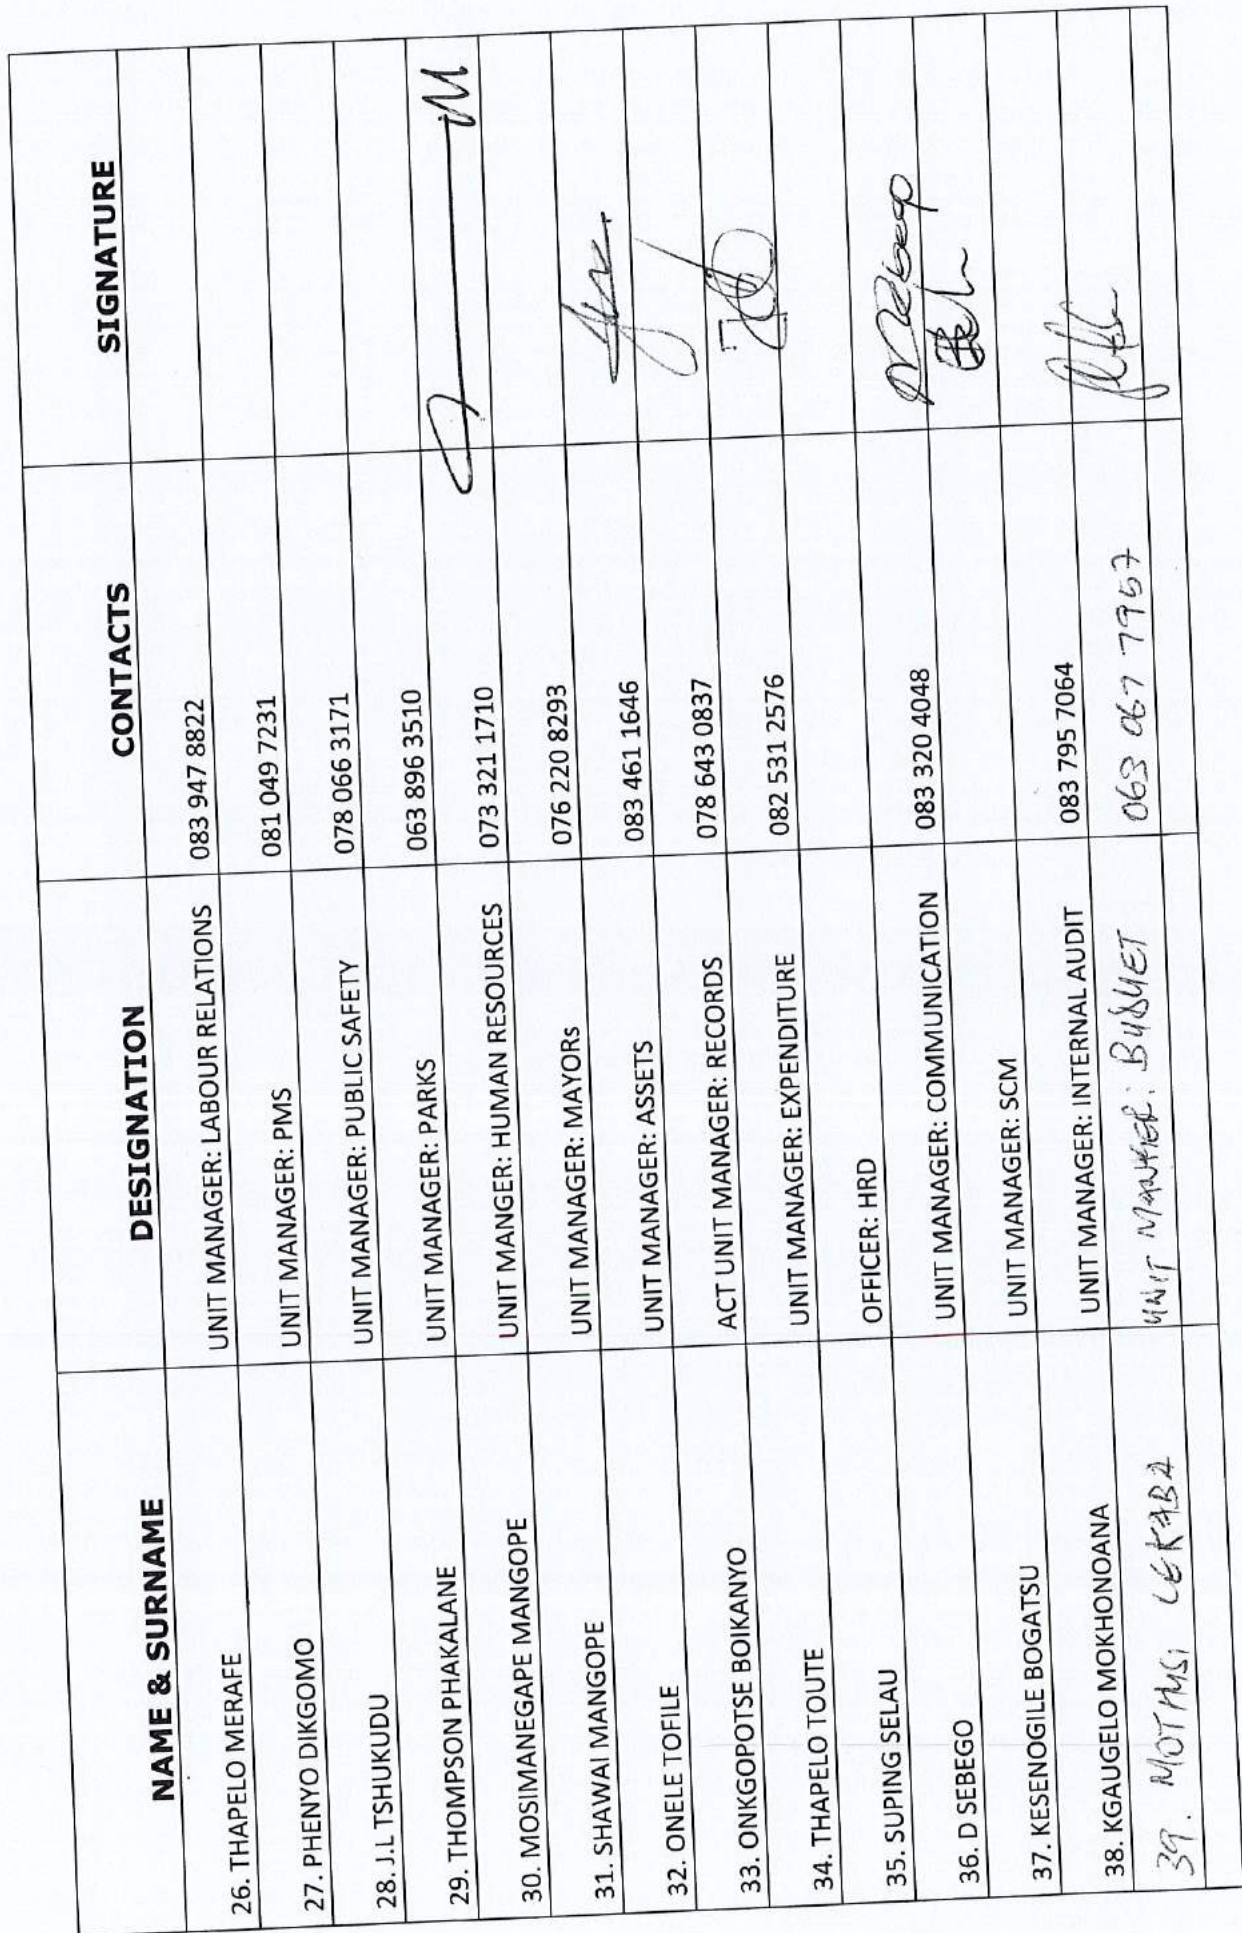 NAME & SURNAME DESIGNATION CONTACTS SIGNATURE
26. THAPELO MERAFE UNIT MANAGER: LABOUR RELATIONS 083 947 8822
27. PHENYO DIKGOMO UNIT MANAGER: PMS 081 049 7231
28. J.L TSHUKUDU UNIT MANAGER: PUBLIC SAFETY 078 066 3171
29. THOMPSON PHAKALANE UNIT MANAGER: PARKS 063 896 3510
30. MOSIMANEGAPE MANGOPE UNIT MANGER: HUMAN RESOURCES 073 321 1710
31. SHAWAI MANGOPE UNIT MANAGER: MAYORs 076 220 8293
32. ONELE TOFILE UNIT MANAGER: ASSETS 083 461 1646
33. ONKGOPOTSE BOIKANYO ACT UNIT MANAGER: RECORDS 078 643 0837
34. THAPELO TOUTE UNIT MANAGER: EXPENDITURE 082 531 2576
35. SUPING SELAU OFFICER: HRD
36. D SEBEGO UNIT MANAGER: COMMUNICATION 083 320 4048
37. KESENOGILE BOGATSU UNIT MANAGER: SCM
38. KGAUGELO MOKHONOANA UNIT MANAGER: INTERNAL AUDIT 083 795 7064
39. MOTHSI LEKABA UNIT MANAGER: BUDGET 063 067 7957